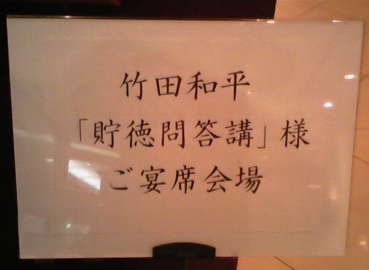 竹田和平
「貯徳問答講」様
ご宴席会場